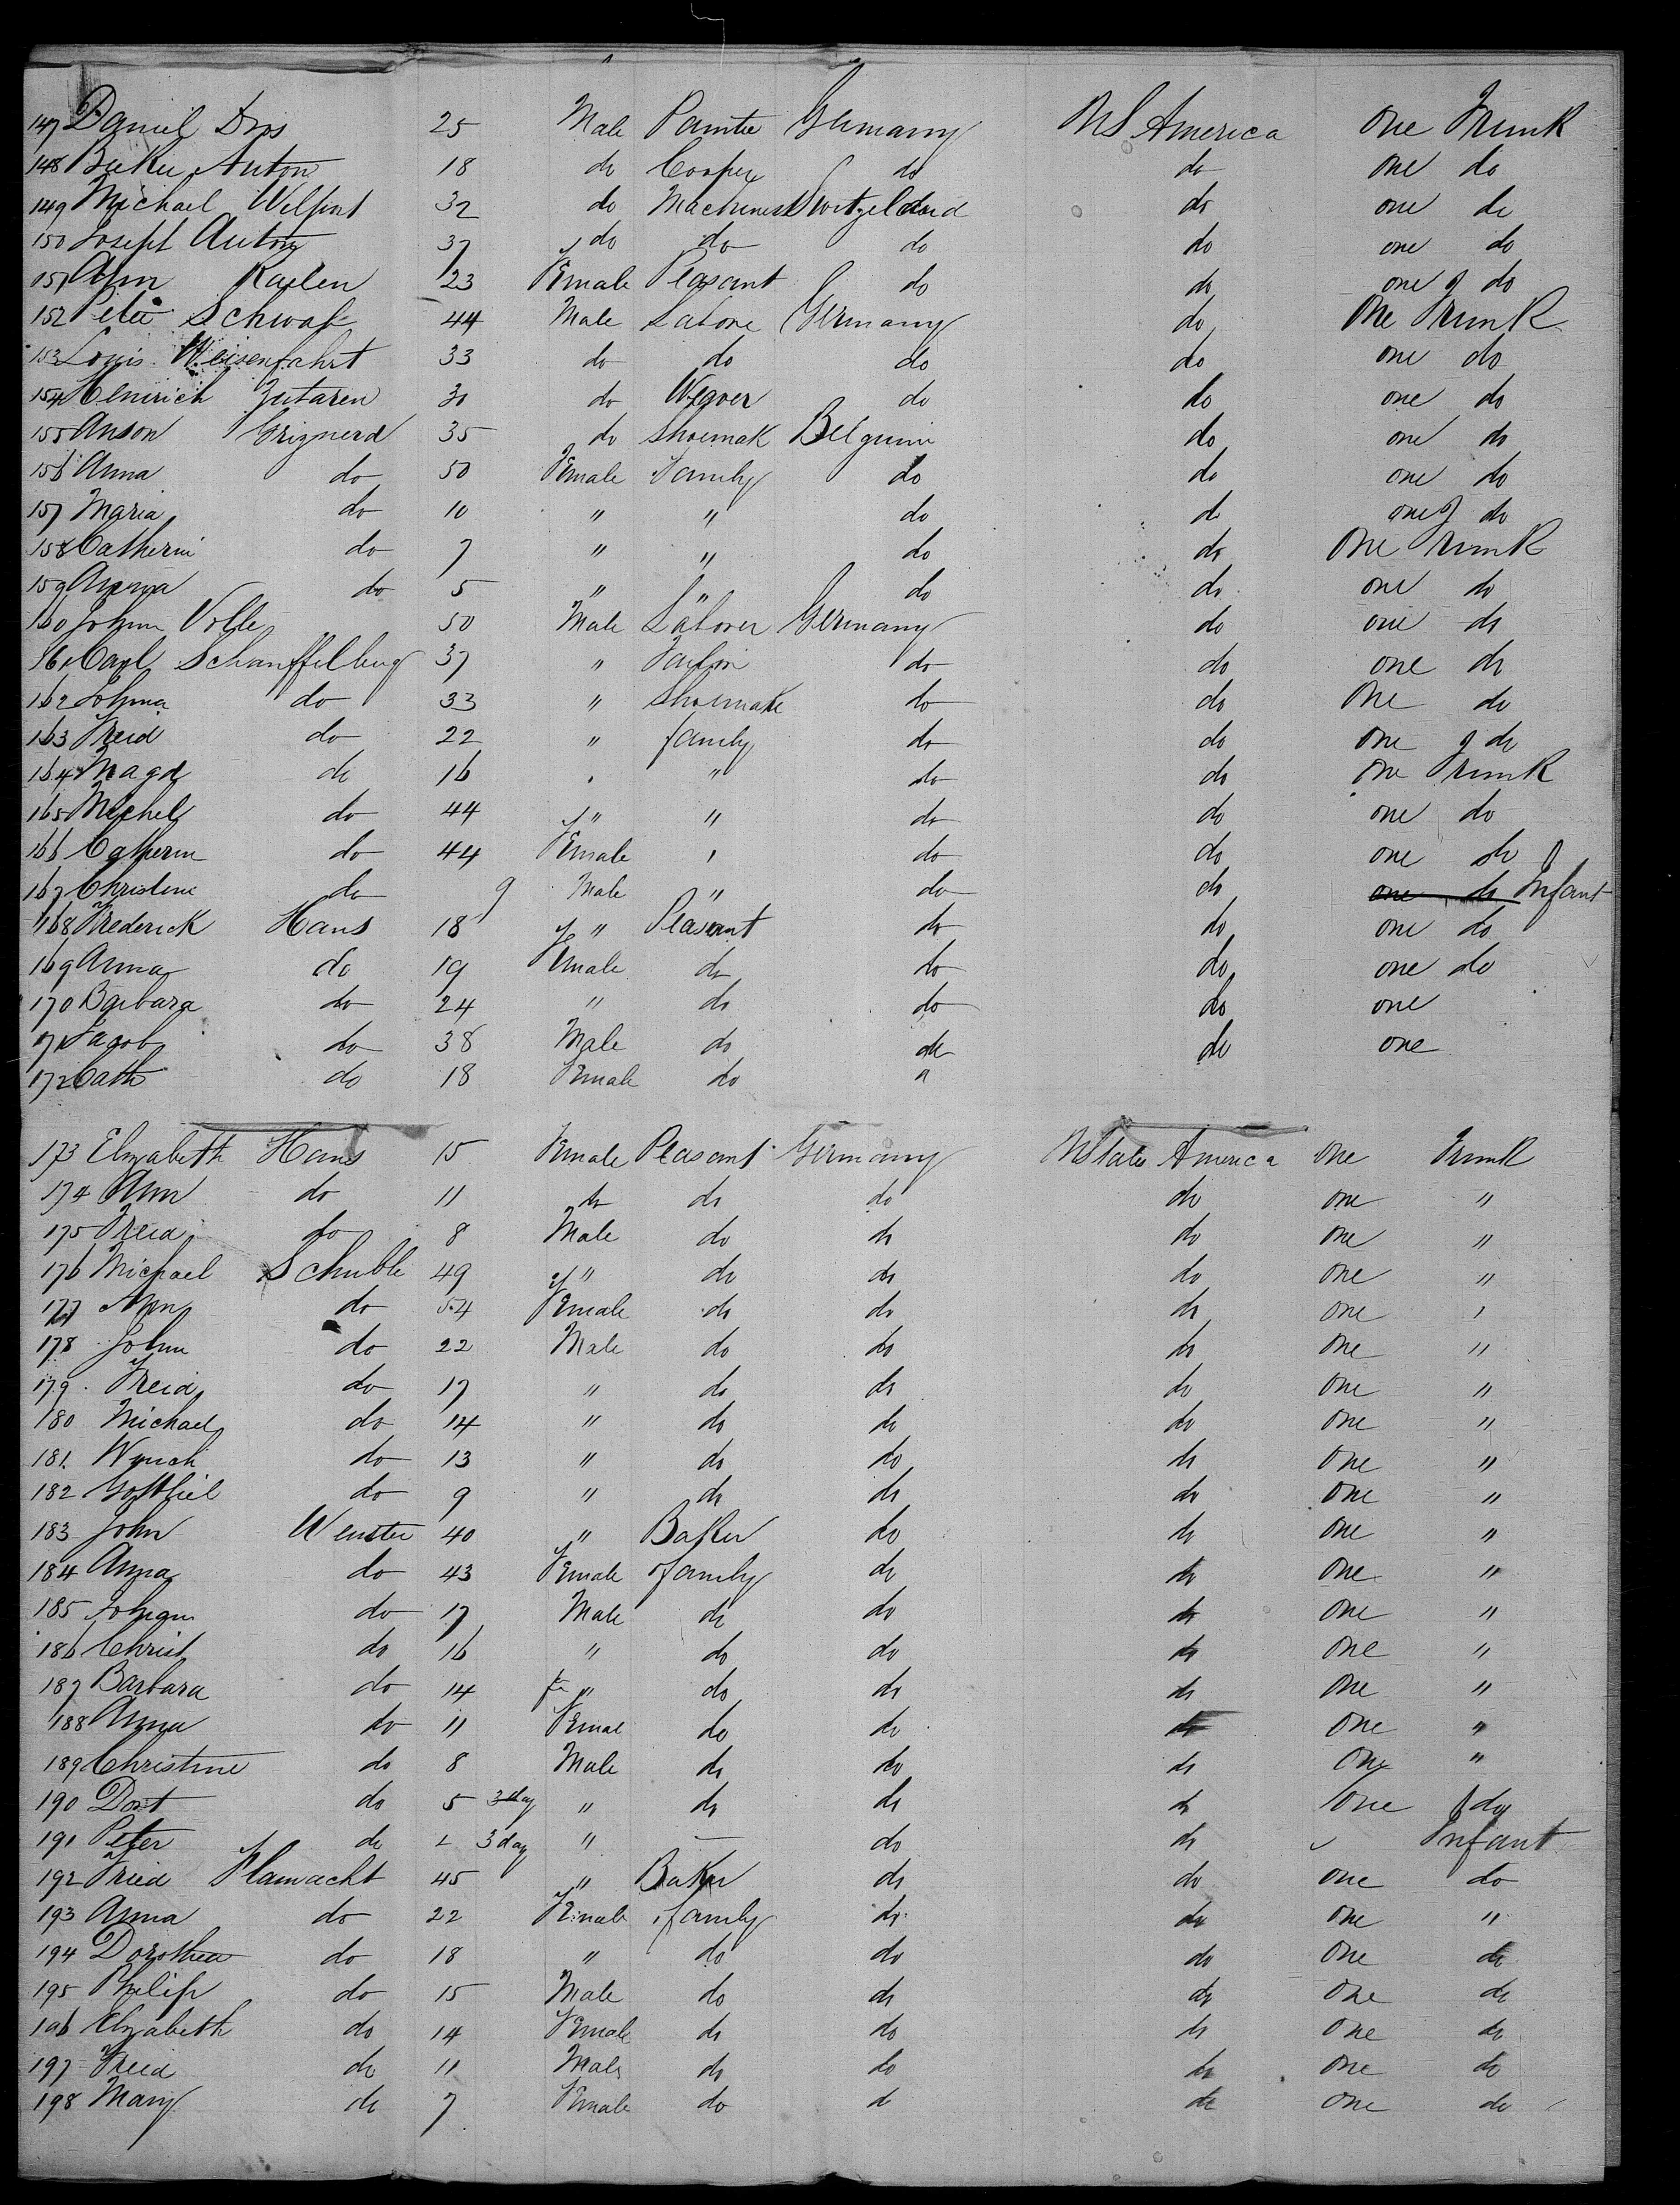 147 Daniel Dros 25 Male Painter Germany US America One Trunk
148 Anton 18 do Cooper do do one do
149 Michael Welfint 32 do Machinest Switzeland do one do
150 Joseph Anton 37 do do do do one do
151 Ann Raelen 23 Female Peasant do do one do
152 Peter Schwab 44 Male Labore Germany do One Trunk
153 Louis Weisenfahrt 33 do do do do one do
154 Heinrich Zutaren 30 do Weaver do do one do
155 Anson Grignerd 35 do Shoemak Belguim do one do
156 Anna do 50 Female Family do do one do
157 Maria do 10 " " do do one do
158 Catherin do 7 " " do do One Trunk
159 Anna do 5 " " do do one do
160 Johnn Volle 50 Male Laborer Germany do one do
161 Carl Schauffelburg 37 " Tailor do do one do
162 Johna do 33 " Shoemake do do One do
163 Freid do 22 " family do do one do
164 Magd do 16 " " do do one Trunk
165 Michel do 44 " " do do one do
166 Catherin do 44 Female " do do one do
167 Christine do 9 Male " do do one do Infant
168 Frederick Hans 18 " Peasant do do one do
169 Anna do 19 Female do do do one do
170 Barbara do 24 " do do do one
171 Jacob do 38 Male do do do one
172 Cath do 18 Female do "
173 Elizabeth Hans 15 Female Peasant Germany UStates America One Trunk
174 Ann do 11 do do do do one "
175 Freid do 8 Male do do do one "
176 Michael Schuble 49 " do do do one "
177 Ann do 54 Female do do do one "
178 John do 22 Male do do do one "
179 Freid do 17 " do do do one "
180 Michael do 14 " do do do one "
181 do 13 " do do do One "
182 Gottliel do 9 " do do do One "
183 John Wenster 40 " Baker do do one "
184 Anna do 43 Female family do do one "
185 Johann do 17 Male do do do one "
186 Christ do 16 " do do do one "
187 Barbara do 14 fe " do do do One "
188 Anna do 11 Femal do do do one "
189 Christine do 8 Male do do do One "
190 Dort do 5 3 day " do do do One do
191 Peter do 3 day " — do do " Infant
192 Fried Flamacht 45 " Baker do do one do
193 Anna do 22 Female family do do one "
194 Dorothea do 18 " do do do one do
195 Philip do 15 Male do do do One do
196 Elizabeth do 14 Female do do do One do
197 Freid do 11 Male do do do one do
198 Mary do 7 Female do do do one do